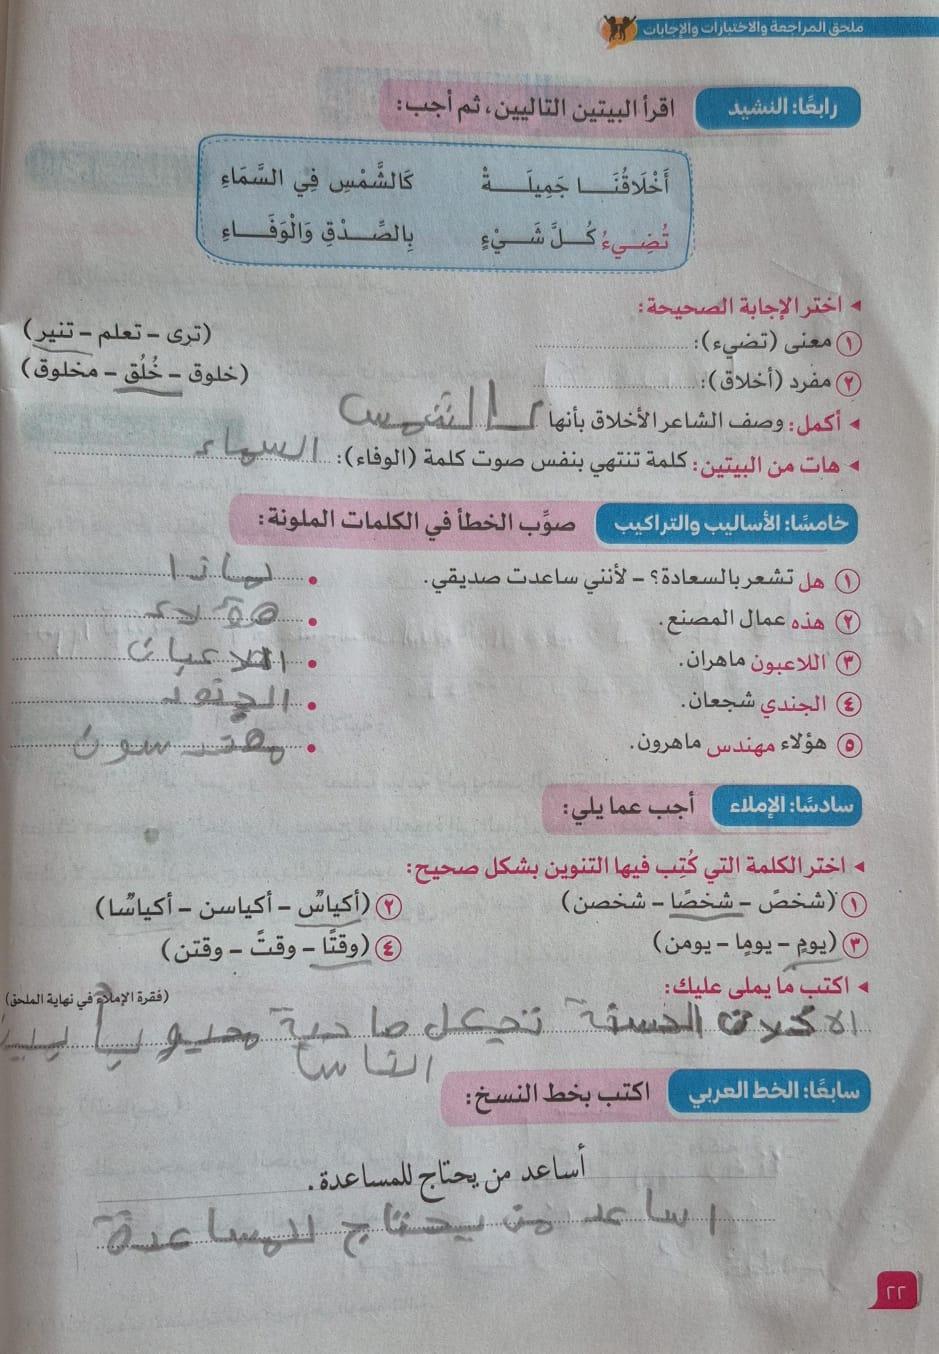 ملحق المراجعة والاختبارات والإجابات
رابعًا: النشيد اقرأ البيتين التاليين، ثم أجب:
أَخْلَاقُنَا جَمِيلَةْ كَالشَّمْسِ فِي السَّمَاءِ
تُضِيءُ كُلَّ شَيْءٍ بِالصِّدْقِ وَالْوَفَاءِ
◂ اختر الإجابة الصحيحة:
١ معنى (تضيء): (ترى – تعلم – تنير)
٢ مفرد (أخلاق): (خلوق – خُلُق – مخلوق)
◂ أكمل: وصف الشاعر الأخلاق بأنها كالشمس
◂ هات من البيتين: كلمة تنتهي بنفس صوت كلمة (الوفاء): السماء
خامسًا: الأساليب والتراكيب صوِّب الخطأ في الكلمات الملونة:
١ هل تشعر بالسعادة؟ – لأنني ساعدت صديقي. • لماذا
٢ هذه عمال المصنع. • هؤلاء
٣ اللاعبون ماهران. • اللاعبان
٤ الجندي شجعان. • الجنود
٥ هؤلاء مهندس ماهرون. • مهندسون
سادسًا: الإملاء أجب عما يلي:
◂ اختر الكلمة التي كُتِب فيها التنوين بشكل صحيح:
١ (شخصً – شخصًا – شخصن) ٢ (أكياسٌ – أكياسن – أكياسٌا)
٣ (يومٍ – يومٍا – يومن) ٤ (وقتًا – وقتً – وقتن)
◂ اكتب ما يملى عليك: (فقرة الإملاء في نهاية الملحق)
الاخلاق الحسنة تجعل صاحبة محبوباً بين
الناس
سابعًا: الخط العربي اكتب بخط النسخ:
أساعد من يحتاج للمساعدة.
اساعد من يحتاج للمساعدة
٢٢